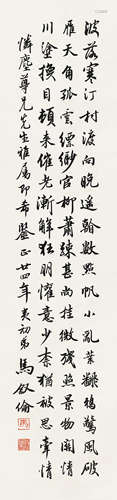 波落寒汀村渡向晚遥看數點帆小亂葉翻鴉驚風破
雁天角孤雲縹緲官柳蕭疎甚尚挂微殘照景物關情
川塗換目頓來催老漸解狂朋懽意少柰猶被思牽情
尊兄先生雅屬即希鑒正廿四年夷初弟馬敘倫